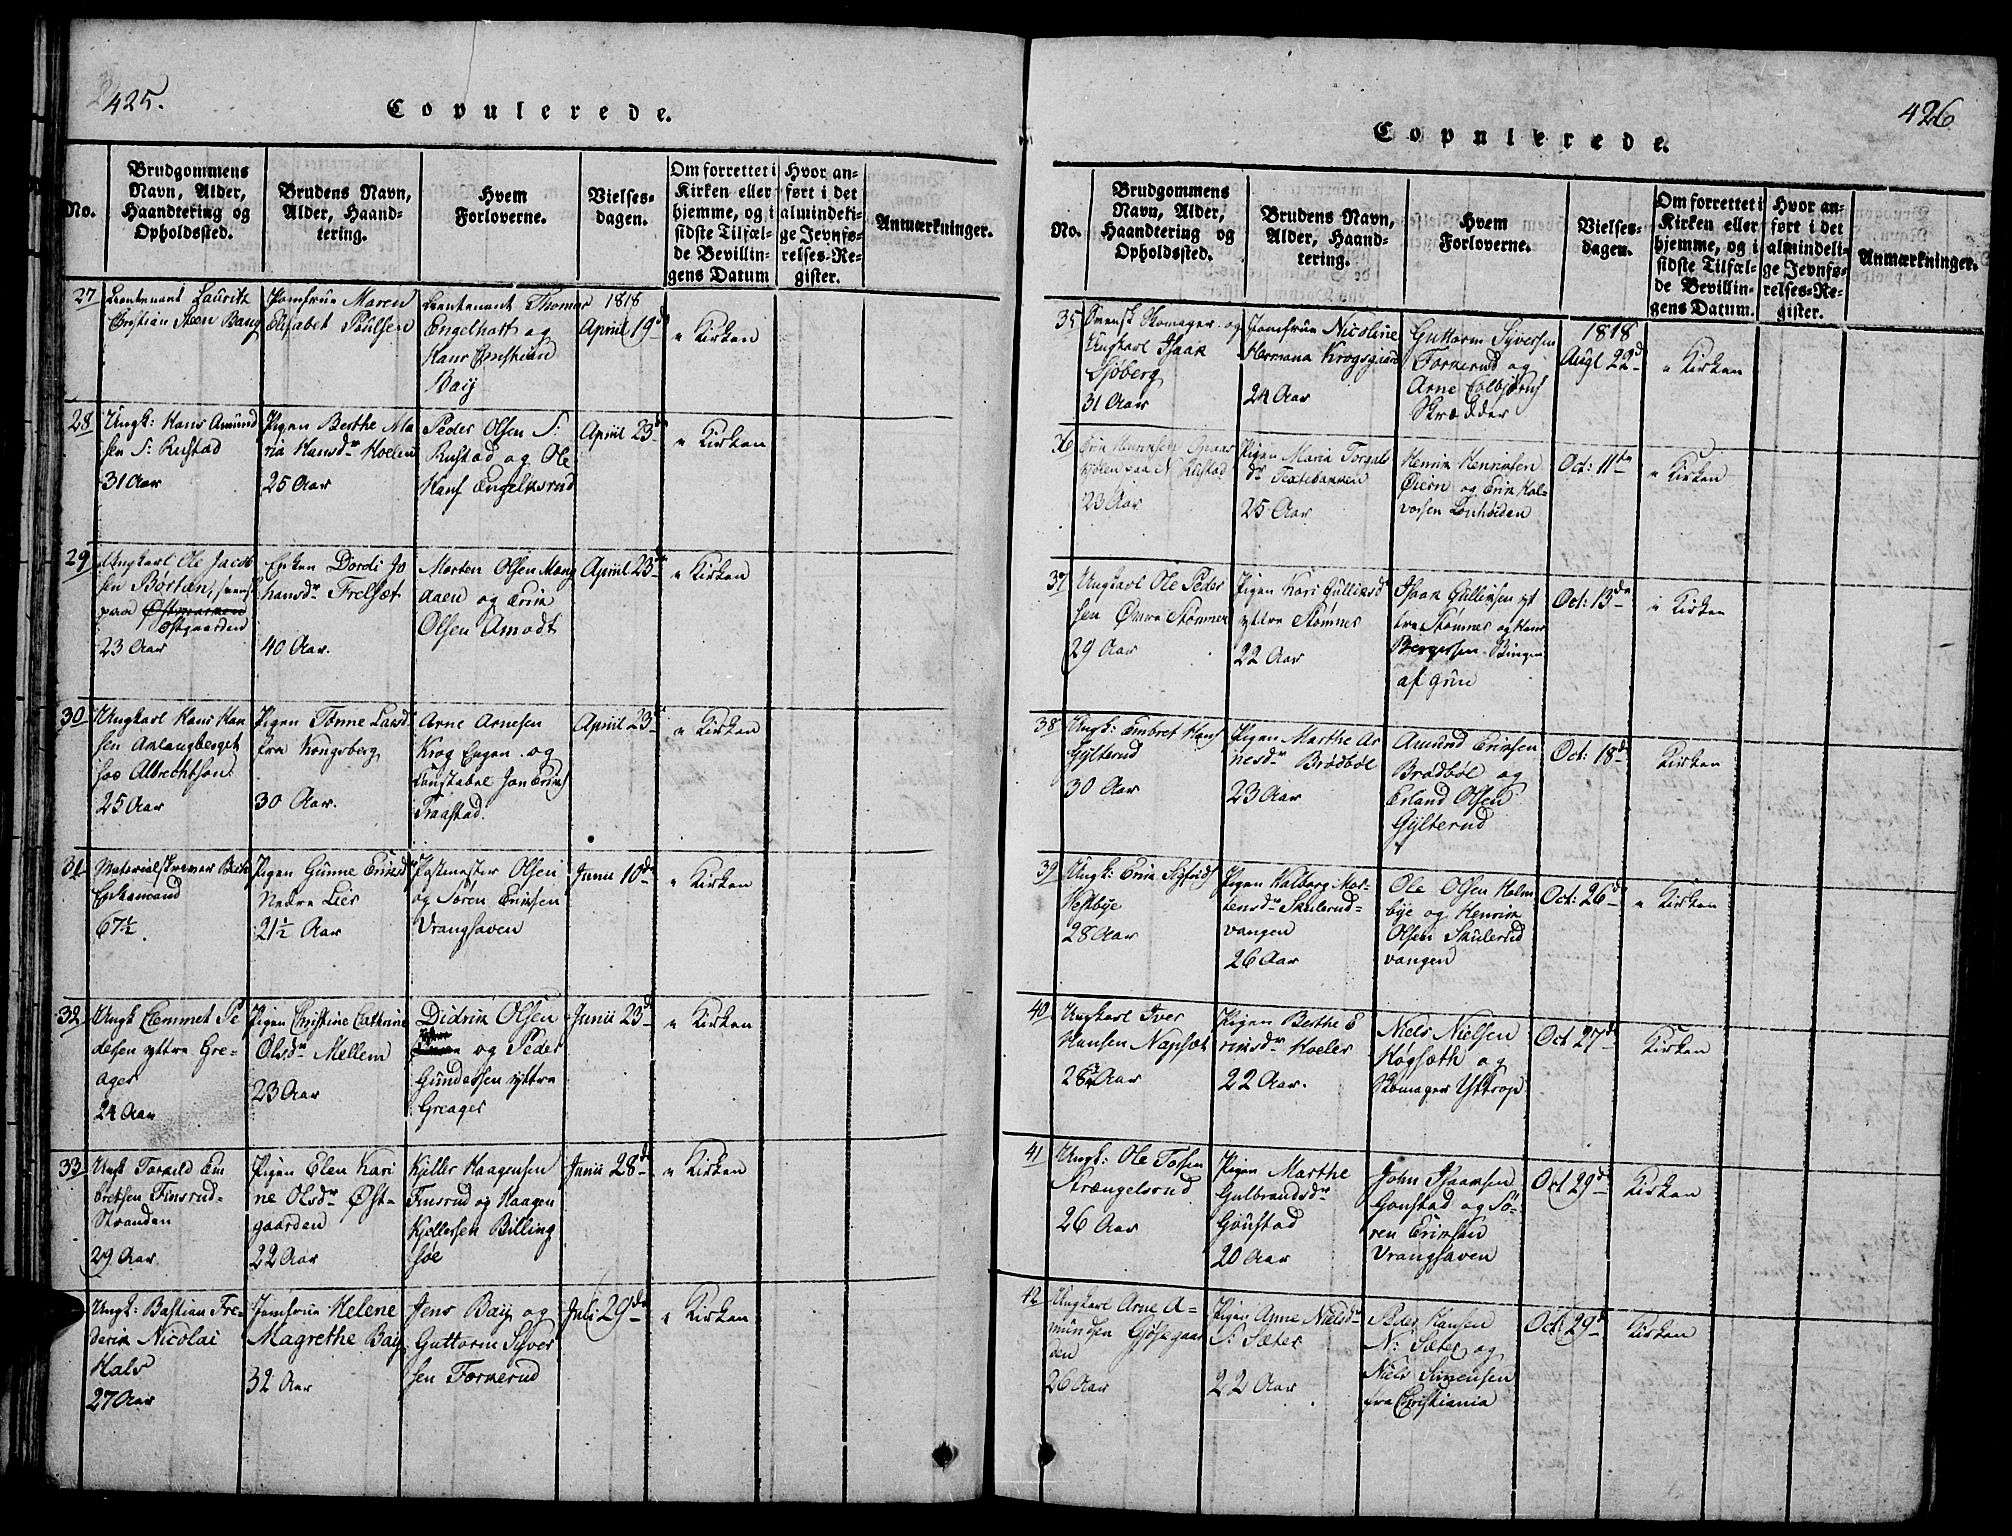 425.
Copulerede.
No.
Brudgommens
Navn, Alder,
Haandtering og
Opholdssted.
Brudens Navn,
Alder, Haand-
tering.
Hvem
Forloverne.
Vielses-
dagen.
Om forrettet i
Kirken eller
hjemme, og i
sidste Tilfæl-
de Bevillin-
gens Datum
Hvor an-
ført i det
almindeli-
ge Jevnfø-
relses-Re-
gister.
Anmærkninger.
27
Lieutenant Lauritz
Christian Steen Bang
Jomfrue Maren
Elisabet Poulsen
Lieutenant Thomas
Engelhart og
Hans Christian
Baÿ
1818
April 19d
" Kirken
28
Ungk: Hans Amund
sen S: Rustad
31 Aar
Pigen Berthe Ma
ria Hansdr Moelen
25 Aar
Peder Olsen S:
Rustad og Ole
Hans Engelhsrud
April 23d
" Kirken
29
Ungkarl Ole Jacob
sen Børten,
paa
Østgaarden
23 Aar
Enken Dordi Jo
hansdr Frelset
40 Aar.
Morten Olsen Mang
aaen og Erik
Olsen Amodt
April 23d
" Kirken
30
Ungkarl Hans Han
sen Anlangberget
hos Albrechtson
25 Aar
Pigen Tonne Larsd
fra Kongsberg
30 Aar.
Arne Arnesen
Krog Engen og
Constabel Jon Erichs
Traastad.
April 23d
" Kirken
31
Materialskriver
Enkemand
67½
Pigen Gunne Ericsdr
Nedre Lier
21½ Aar
Postmester Olsen
og Søren Ericsen
Vrangsaven
Junii 10d
" Kirken
32
Ungk Clemmet Pe
dersen yttre Gre-
ager
24 Aar
Pigen Christine Cathrine
Olsdr Mellem
23 Aar
Didrik Olsen
og Peder
Gundersen yttre
Greager
Junii 23d
" Kirken
33
Ungk Torkild Em
bretsen Finsrud-
Stranden
29 Aar
Pigen Elen Kari
ne Olsdr Øst-
gaarden
22 Aar
Kjeller Haagensen
Finsrud og Haagen
Kjellersen Billing
søe
Junii 28d
" Kirken
Ungk: Bastian Fre-
derik Nicolai
Hals
27 Aar
Jomfrue Helene
Magrethe Baÿ
32 Aar
Jens Baÿ og
Guttorm Siver
sen Fornerud
Juli 29d
" Kirken
426
Copulerede.
No.
Brudgommens
Navn, Alder,
Haandtering og
Opholdssted.
Brudens Navn,
Alder, Haand-
tering.
Hvem
Forloverne.
Vielses-
dagen.
Om forrettet i
Kirken eller
hjemme, og i
sidste Tilfæl-
de Bevillin-
gens Datum.
Hvor an-
ført i det
almindeli-
ge Jevnfø-
relses-Re-
gister.
Anmærkninger.
35
Svensk Skomager og
Ungkarl Isaak
Sjøberg
31 Aar
Jomfrue Nicoline
Hermana Krogsgaard
24 Aar
Guttorm Syversen
Fornerud og
Arne Colbjørns
Skrædder
1818
Augl 22d
" Kirken
36
Erik Henriksen
paa N. Rustad
23 Aar
Pigen Maria Torgals
dr Textebanken
25 Aar
Henrik Henriksen
Øiern og Erik Hal-
vorsen Lonhøiden
Oct: 11te
" Kirken
37
Ungkarl Ole Peder
sen Øvre Stømner
29 Aar
Pigen Kari Gulliksd
yttre Stømner
22 Aar
Isaak Gulliksen yt
tre Stømner og Hans
Bergersen Bingen
af Grue
Oct: 13de
" Kirken
38
Ungk: Embret Hans
Gÿlterud
30 Aar
Pigen Marthe Ar
nesdr Brødbøl
23 Aar
Amund Eriksen
Brødbøl og
Erland Olsen
Gÿlterud
Oct: 18de
Kirken
39
Ungk: Erik Sigfrids
Vestbÿe
28 Aar
Pigen Valborg Mor-
tensdr Skulerud-
vangen
26 Aar
Ole Olsen Holm
bÿe og Henrik
Olsen Skulerud
vangen
Oct: 26d
" Kirken
40
Ungkarl Iver
Hansen Napset
28¾ Aar
Pigen Berthe E
riksdr Noeler
22 Aar.
Niels Nielsen
Høgsæth og
Skomager Yttrop
Oct 27d
Kirken
41
Ungk: Ole Tosten
Strængelsrud
26 Aar
Pigen Marthe
Gulbrandsdr
Gonstad
20 Aar
John Isaaksen
Gonstad og Sö-
ren Eriksen
Vrangsaven
Oct 29d
Kirken
42
Ungkarl Arne A-
mundsen Gjøsegaar
den
26 Aar
Pigen Anne Nielsdr
S. Sæter
22 Aar
Peder Hansen
N: Sæter og
Niels Simensen
fra Christiania
Oct 29d
Kirken